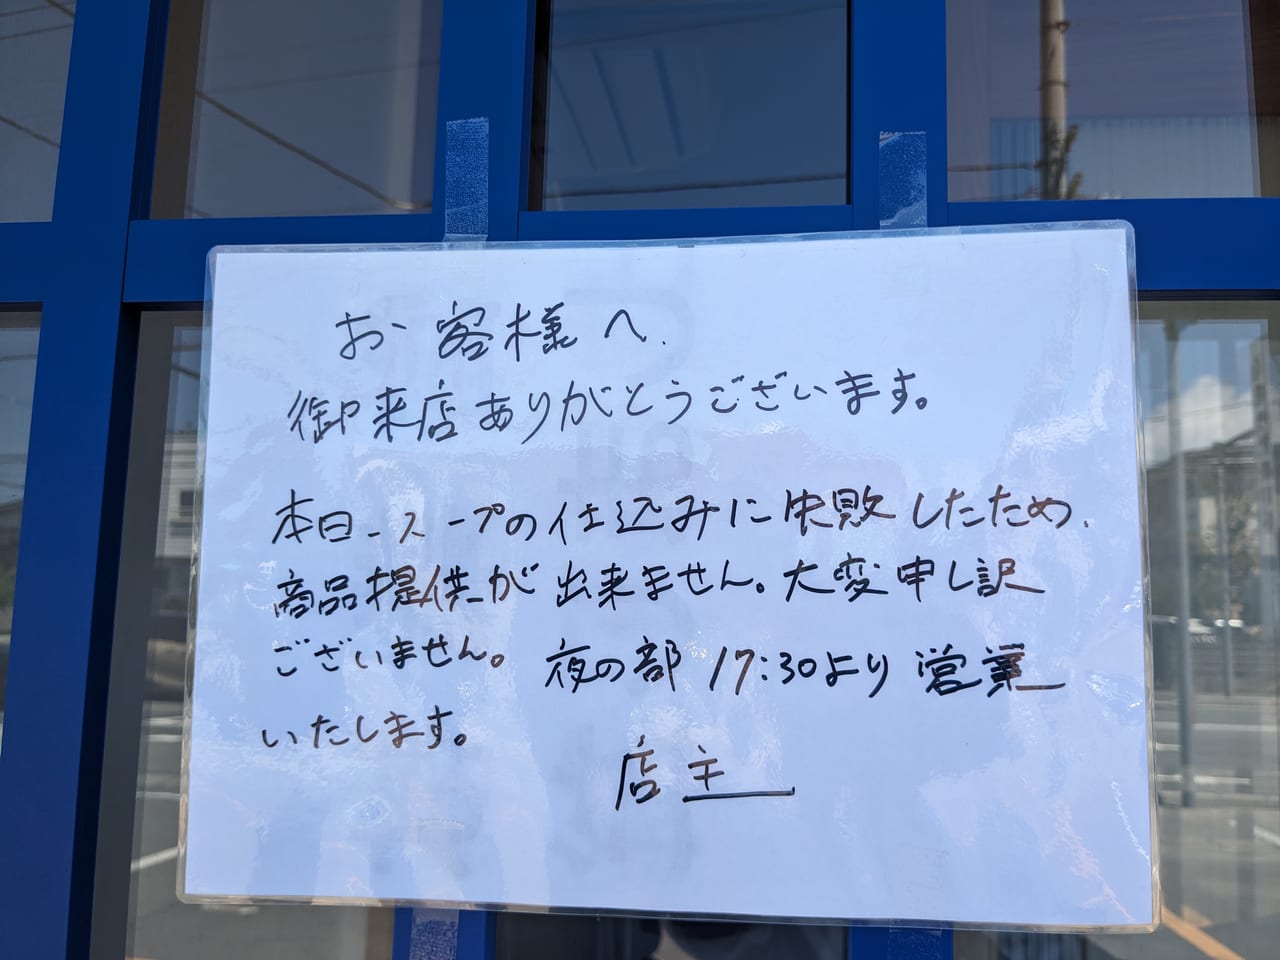 お客様へ.
御来店ありがとうございます。
本日、スープの仕込みに失敗したため、
商品提供が出来ません。大変申し訳
ございません。夜の部 17:30より営業
いたします。
店主